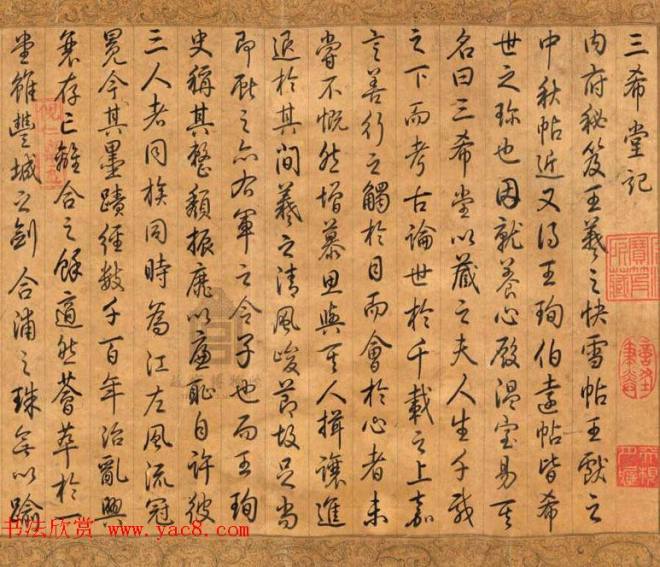 三希堂記
内府秘笈王羲之快雪帖王獻之
中秋帖近又得王珣伯遠帖皆希
世之珎也因就養心殿溫室易其
名曰三希堂以藏之夫人生千載
之下而考古論世於千載之上嘉
言善行之觸於目而會於心者未
嘗不慨然增慕思與其人揖讓進
退於其間羲之清風峻節故足尚
即獻之亦右軍之令子也而王珣
史稱其整頹振靡以廉恥自許彼
三人者同族同時為江左風流冠
冕今其墨蹟經數千百年治亂興
衰存亡離合之餘適然薈萃於一
堂雖豐城之劍合浦之珠無以踰
书法欣赏
www.yac8.com